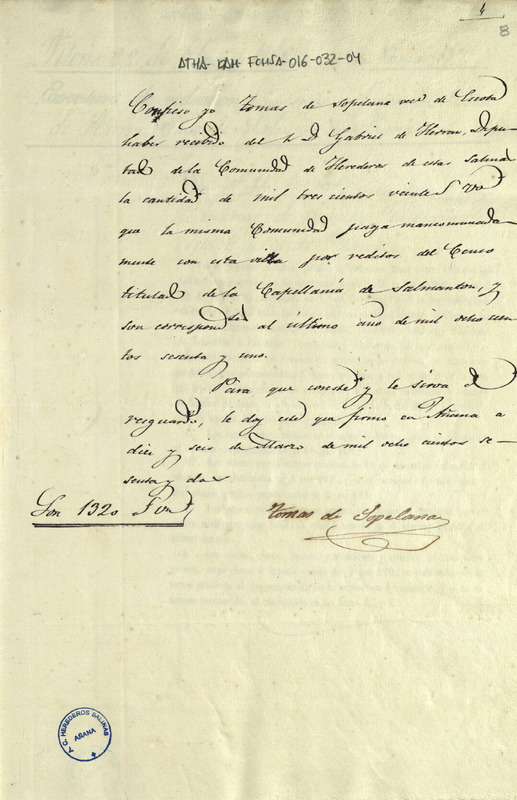 4
8
ATHA-DAH-FCHSA-016-032-04
Confieso yo Tomas de Sopelana vec.º de Escota
haber recibido del S.r D. Gabriel de Herran, Dipu-
tad.º de la Comunidad de Herederos de estas Salinas
la cantidad de mil tres cientos veinte r.s v.on
que la misma Comunidad paga mancomunada-
mente con esta villa por reditos del Censo
titulad.º de la Capellanía de Salmanton, y
son correspond.tes al último año de mil ocho cien-
tos sesenta y uno.
Para que conste y le sirva de
resguardo, le doy este que firmo en Añana a
diez y seis de Marzo de mil ocho cientos se-
senta y dos
Son 1320 r.s v.on
Tomas de Sopelana
C. HEREDEROS SALINAS
AÑANA